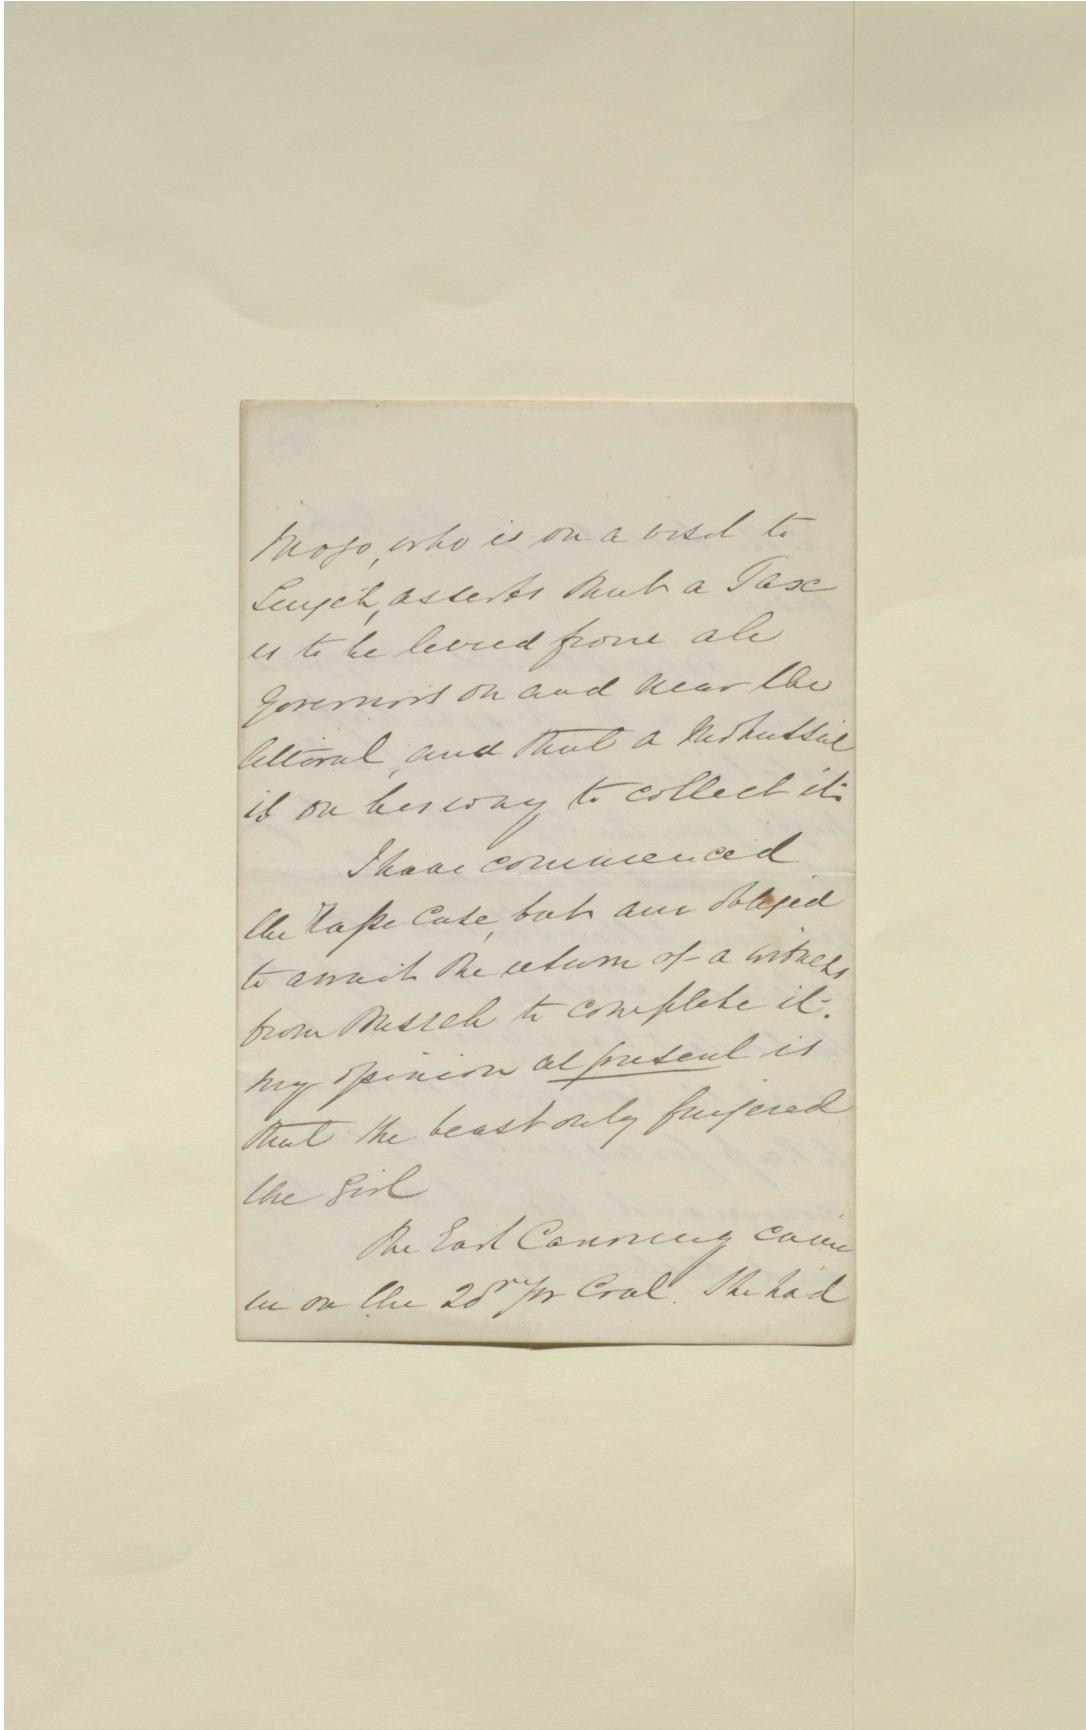 Mogo, who is on a visit to
Lingeh, asserts that a Tax
is to be levied from all
Governors on and near the
littoral, and that a Mohussil
is on his way to collect it.
I have commenced
the Rape Case, but am obliged
to await the return of a witness
from to complete it.
My opinion at present is
that the beast only fingered
the girl
The Earl Canning came
in on the for Coal. She had